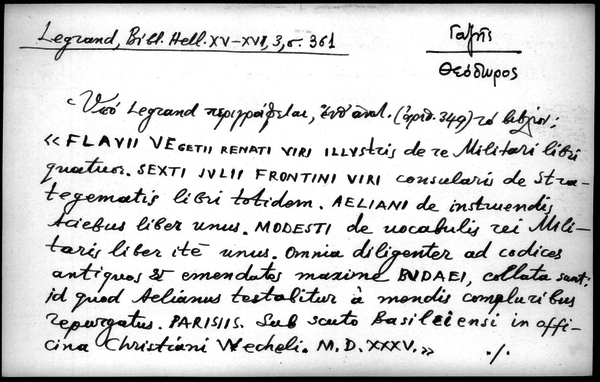 Legrand, Bibl. Hell. XV-XVI, 3, σ. 361
Γαζῆς
Θεόδωρος
Ὑπό Legrand περιγράφεται, (ἀριθ. 349) τό βιβλίον:
«FLAVII VEGETII RENATI VIRI ILLVStris de re Militari libri
quatuor. SEXTI JVLII FRONTINI VIRI consularis de Stra-
tegematis libri totidem. AELIANI de instruendis
Aciebus liber unus. MODESTI de vocabulis rei Mili-
taris liber itē unus. Omnia diligenter ad codices
antiquos & emendatos maxime BVDAEI, collata sunt:
id quod Aelianus testabitur à mendis compluribus
repurgatus. PARISIIS. Sub scuto Basileiensi in offi-
cina Christiani Wecheli. M.D.XXXV.» ./.